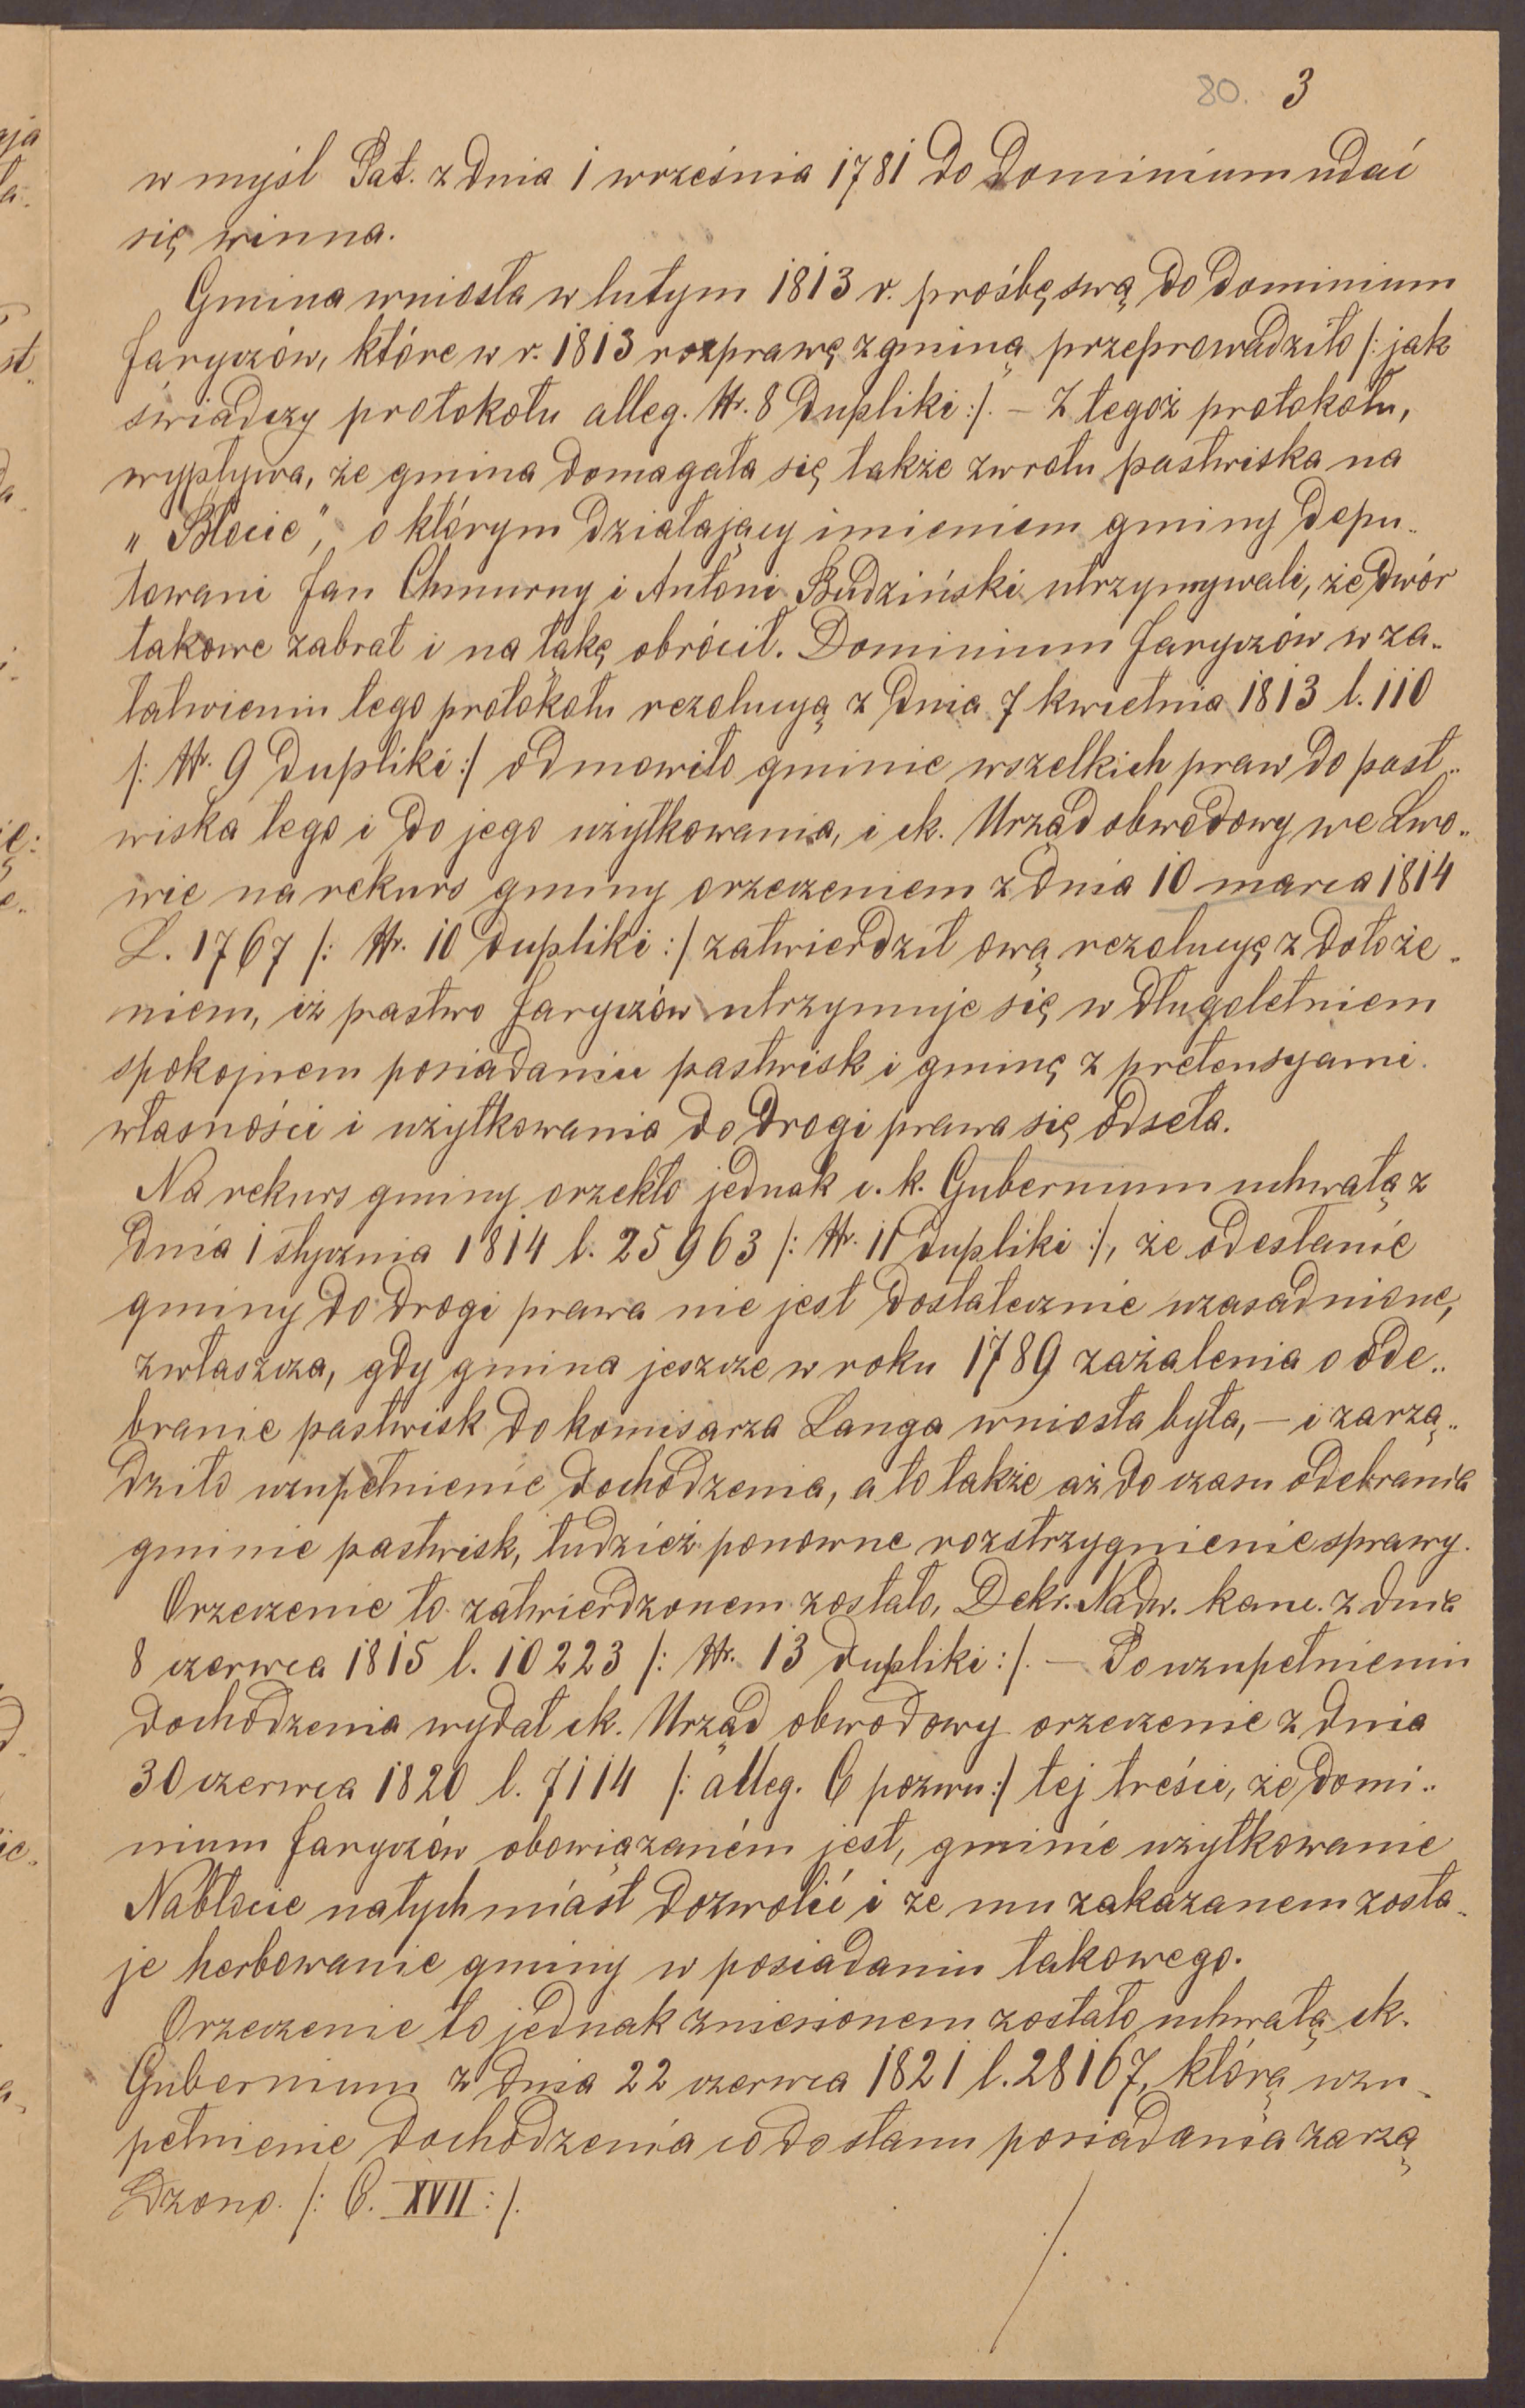 80. 3
w myśl Pat. z dnia 1 września 1781 do Dominium udać
się winna.
Gmina wniosła w lutym 1813 r. prośbę swą do dominium
Jaryczów, które w r. 1813 rozprawę z gminą przeprowadziło /: jak
świadczy protokołu alleg. Nr. 8 dupliki :/. – Z tegoż protokołu,
wypływa, że gmina domagała się także zwrotu pastwiska na
„Błocie", o którym działający imieniem gminy depu-
towani Jan Chmurny i Antoni Budziński utrzymywali, że dwór
takowe zabrał i na łąkę obrócił. Dominium Jaryczów w za-
łatwieniu tego protokołu rezolucyą z dnia 7 kwietnia 1813 l. 110
/: Nr. 9 dupliki :/ odmowiło gminie wszelkich praw do past-
wiska tego i do jego użytkowania, i ck. Urząd obwodowy we Lwo-
wie na rekurs gminy orzeczeniem z dnia 10 marca 1814
L. 1767 /: Nr. 10 dupliki :/ zatwierdził ową rezolucyę z dołoże-
niem, iż państwo Jaryczów utrzymuje się w długoletniem
spokojnem posiadaniu pastwisk i gminę z pretensyami
własności i użytkowania do drogi prawa się odseła.
Na rekurs gminy orzekło jednak c. k. Gubernium uchwałą z
dnia 1 stycznia 1814 l. 25963 /: Nr. 11 dupliki :/, że odesłanie
gminy do drogi prawa nie jest dostatecznie uzasadnione,
zwłaszcza, gdy gmina jeszcze w roku 1789 zażalenia o ode-
branie pastwisk do komisarza Langa wniosła była, – i zarzą-
dziło uzupełnienie dochodzenia, a to także aż do czasu odebrania
gminie pastwisk, tudzież ponowne rozstrzygnienie sprawy.
Orzeczenie to zatwierdzonem zostało, Dekr. Nadw. kanc. z dnia
8 czerwca 1815 l. 10223 /: Nr. 13 dupliki :/. – Po uzupełnieniu
dochodzenia wydał ck. Urząd obwodowy orzeczenie z dnia
30 czerwca 1820 l. 7114 /: alleg. C pozwu :/ tej treści, że domi-
nium Jaryczów obowiązaném jest, gminie użytkowanie
Nabłocie natychmiast dozwolić i że mu zakazanem zosta-
je herbowanie gminy w posiadaniu takowego.
Orzeczenie to jednak zniesionem zostało uchwałą ck.
Gubernium z dnia 22 czerwca 1821 l. 28167, którą uzu-
pełnienie dochodzenia co do stanu posiadania zarzą
dzono. /: C. XVII :/.
./.